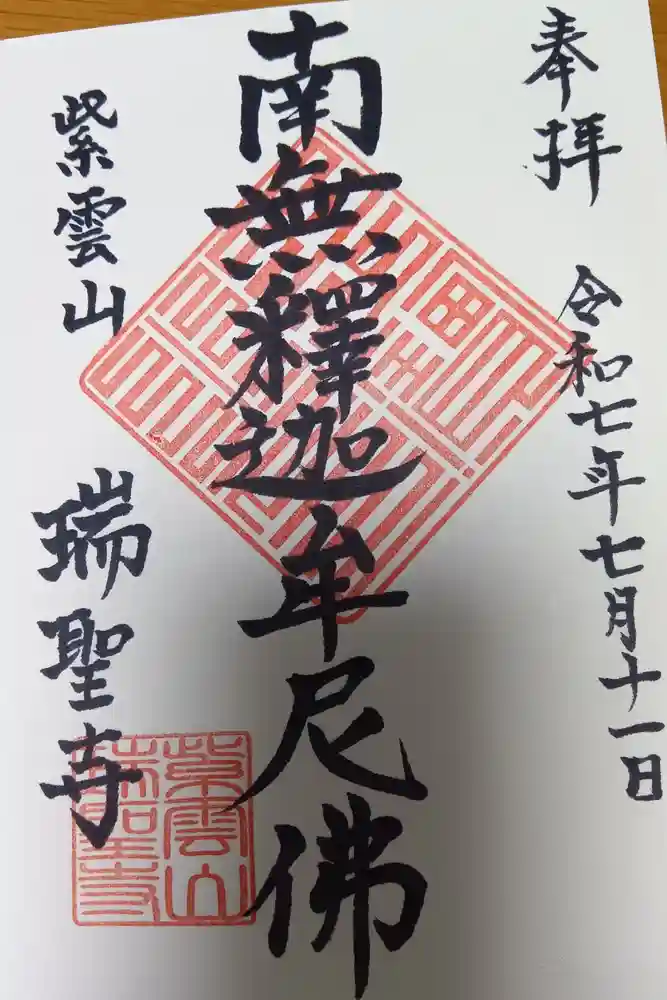 奉拝
令和七年七月十一日
南無釋迦牟尼佛
紫雲山
瑞聖寺
紫雲山
瑞聖寺